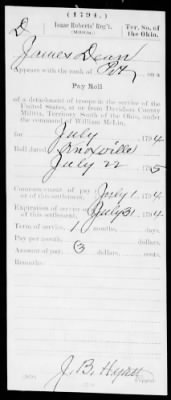 (1794.)
D Isaac Roberts' Reg't. Ter. So. of
(MILITIA.) the Ohio.
James Dean
Appears with the rank of Pvt on a
Pay Roll
of a detachment of troops in the service of the
United States, at or from Davidson County
Militia, Territory South of the Ohio, under
the command of William McLin,
for July 1794
Roll dated Knoxville
July 22 1795
Commencement of pay
of this settlement, July 1, 1794
Expiration of service
of this settlement, July 31, 1794
Term of service, 1 months, days.
Pay per month, dollars.
Amount of pay, 3 dollars, cents.
Remarks:
J. B. Hyatt
Copyist.